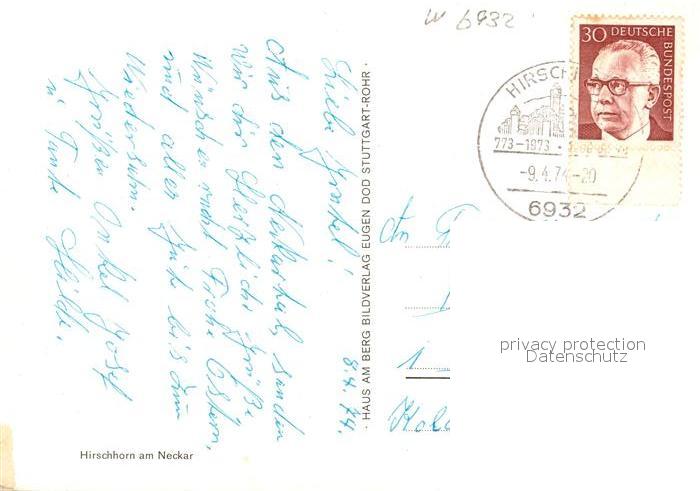 W 6932
30 DEUTSCHE
BUNDESPOST
HIRSCH
773-1973
-9.4.74-20
6932
8.4.74.
Liebe
Aus dem Neckartal, senden
wir dir Herzliche Grüße
Wünschen recht Frohe Ostern,
und alles Gute bis zum
Wiedersehn.
Grüßen Onkel Josef
u. Tante Hilde.
· HAUS AM BERG BILDVERLAG EUGEN DOD STUTTGART-ROHR ·
An
1
privacy protection
Datenschutz
Hirschhorn am Neckar